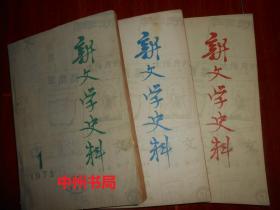 新文学史料
1
1978
新文学史料
新文学史料
中州书局